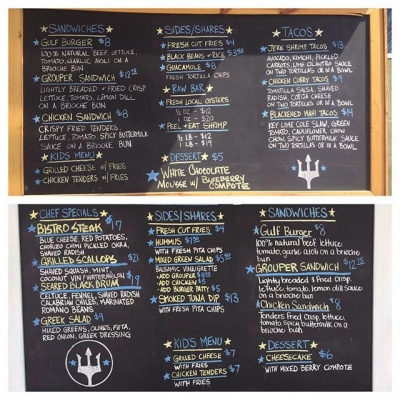 SANDWICHES
GULF BURGER $8
100% NATURAL BEEF, LETTUCE,
TOMATO, GARLIC AIOLI ON A
BRIOCHE BUN
GROUPER SANDWICH $12
LIGHTLY BREADED + FRIED CRISP
LETTUCE, TOMATO, LEMON DILL
ON A BRIOCHE BUN
CHICKEN SANDWICH $8
CRISPY FRIED TENDERS,
LETTUCE, TOMATO, SPICY BUTTERMILK
SAUCE ON A BRIOCHE BUN
KIDS MENU
GRILLED CHEESE W/ FRIES
CHICKEN TENDERS W/ FRIES
SIDES/SHARES
FRESH CUT FRIES $4
BLACK BEANS + RICE
GUACAMOLE $8
FRESH TORTILLA CHIPS
RAW BAR
FRESH LOCAL OYSTERS
1/2 DZ - $12
1 DZ - $20
PEEL + EAT SHRIMP
1/2 LB - $12
1 LB - $19
DESSERT $5
WHITE CHOCOLATE
MOUSSE W/ BLUEBERRY
COMPOTE
TACOS
JERK SHRIMP TACOS $13
AVOCADO, KIMCHI, PICKLED
CARROTS, LIME CILANTRO SAUCE
ON TWO TORTILLAS OR IN A BOWL
CHICKEN CURRY TACOS
TOMATILLO SALSA, SHAVED
RADISH COTIJA CHEESE
ON TWO TORTILLAS OR IN A BOWL
BLACKENED MAHI TACOS $14
KEY LIME COLE SLAW, GREEN
TOMATO, CAULIFLOWER, CHOW
CHOW, SPICY BUTTERMILK SAUCE
ON TWO TORTILLAS OR IN A BOWL
CHEF SPECIALS
BISTRO STEAK $17
BLUE CHEESE, RED POTATOES,
CHORIZO CHIPS PICKLED OKRA,
SHAVED RADISH
GRILLED SCALLOPS $21
SHAVED SQUASH, MINT,
COCONUT VIN / WATERMELON
SEARED BLACK DRUM $19
CELTUCE, FENNEL, SHAVED RADISH
CALABRIAN CHILES, MARINATED
ROMANO BEANS
GREEK SALAD $9
MIXED GREENS, OLIVES, FETA,
RED ONION, GREEK DRESSING
SIDES/SHARES
FRESH CUT FRIES $4
HUMMUS
WITH FRESH PITA CHIPS
MIXED GREEN SALAD
BALSAMIC VINAIGRETTE
ADD GROUPER
ADD CHICKEN $5
ADD BURGER PATTY $5
SMOKED TUNA DIP $13
WITH FRESH PITA CHIPS
KIDS MENU
GRILLED CHEESE $7
WITH FRIES
CHICKEN TENDERS $7
WITH FRIES
SANDWICHES
Gulf Burger $8
100% natural beef, lettuce,
tomato, garlic aioli on a
brioche bun
GROUPER SANDWICH $12
Lightly breaded + fried crisp
lettuce, tomato, lemon dill sauce
on a brioche bun
Chicken Sandwich $8
Tenders fried crisp, lettuce,
tomato, spicy buttermilk on a
brioche bun
DESSERT
CHEESECAKE $6
WITH MIXED BERRY COMPOTE